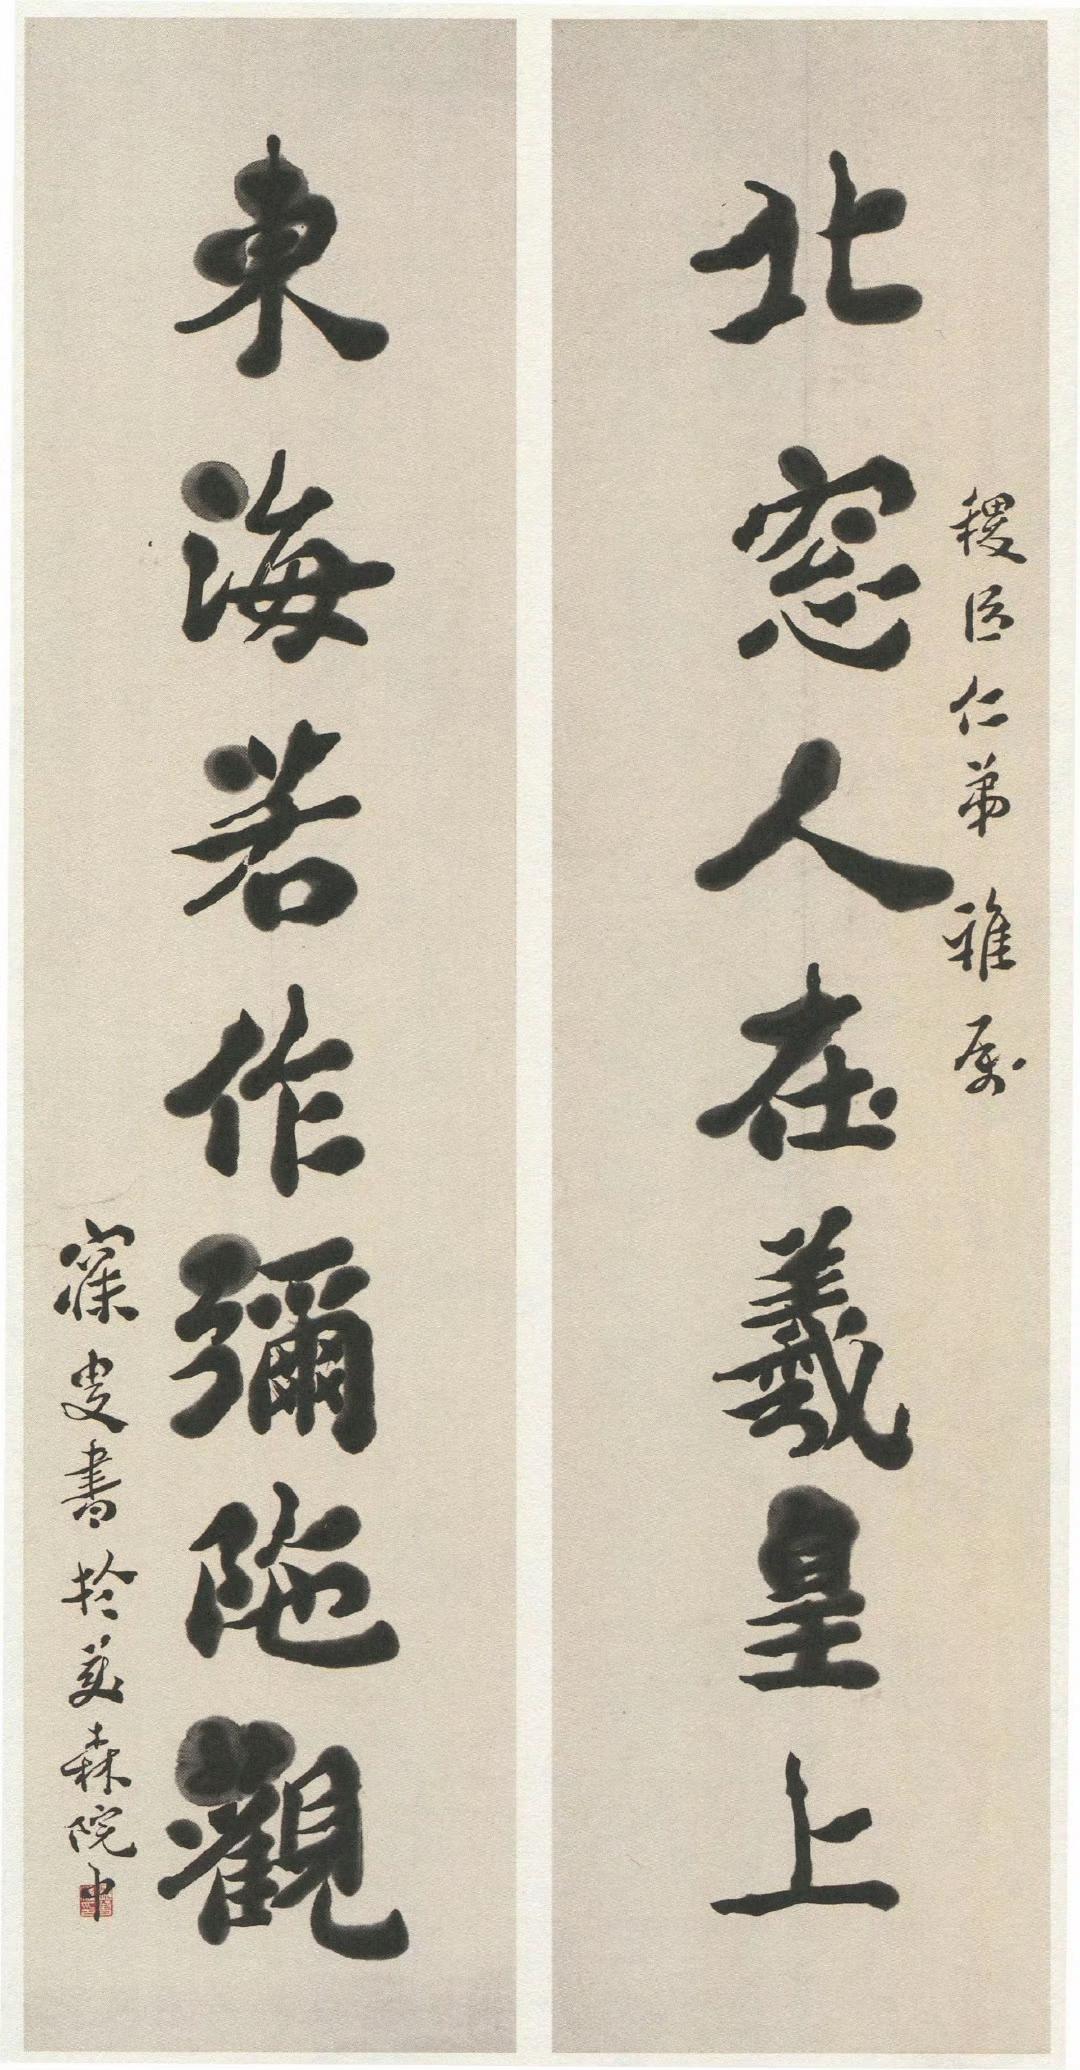 稷臣仁弟雅属
北窓人在羲皇上
東海若作彌陁觀
寐叟書於美森院中